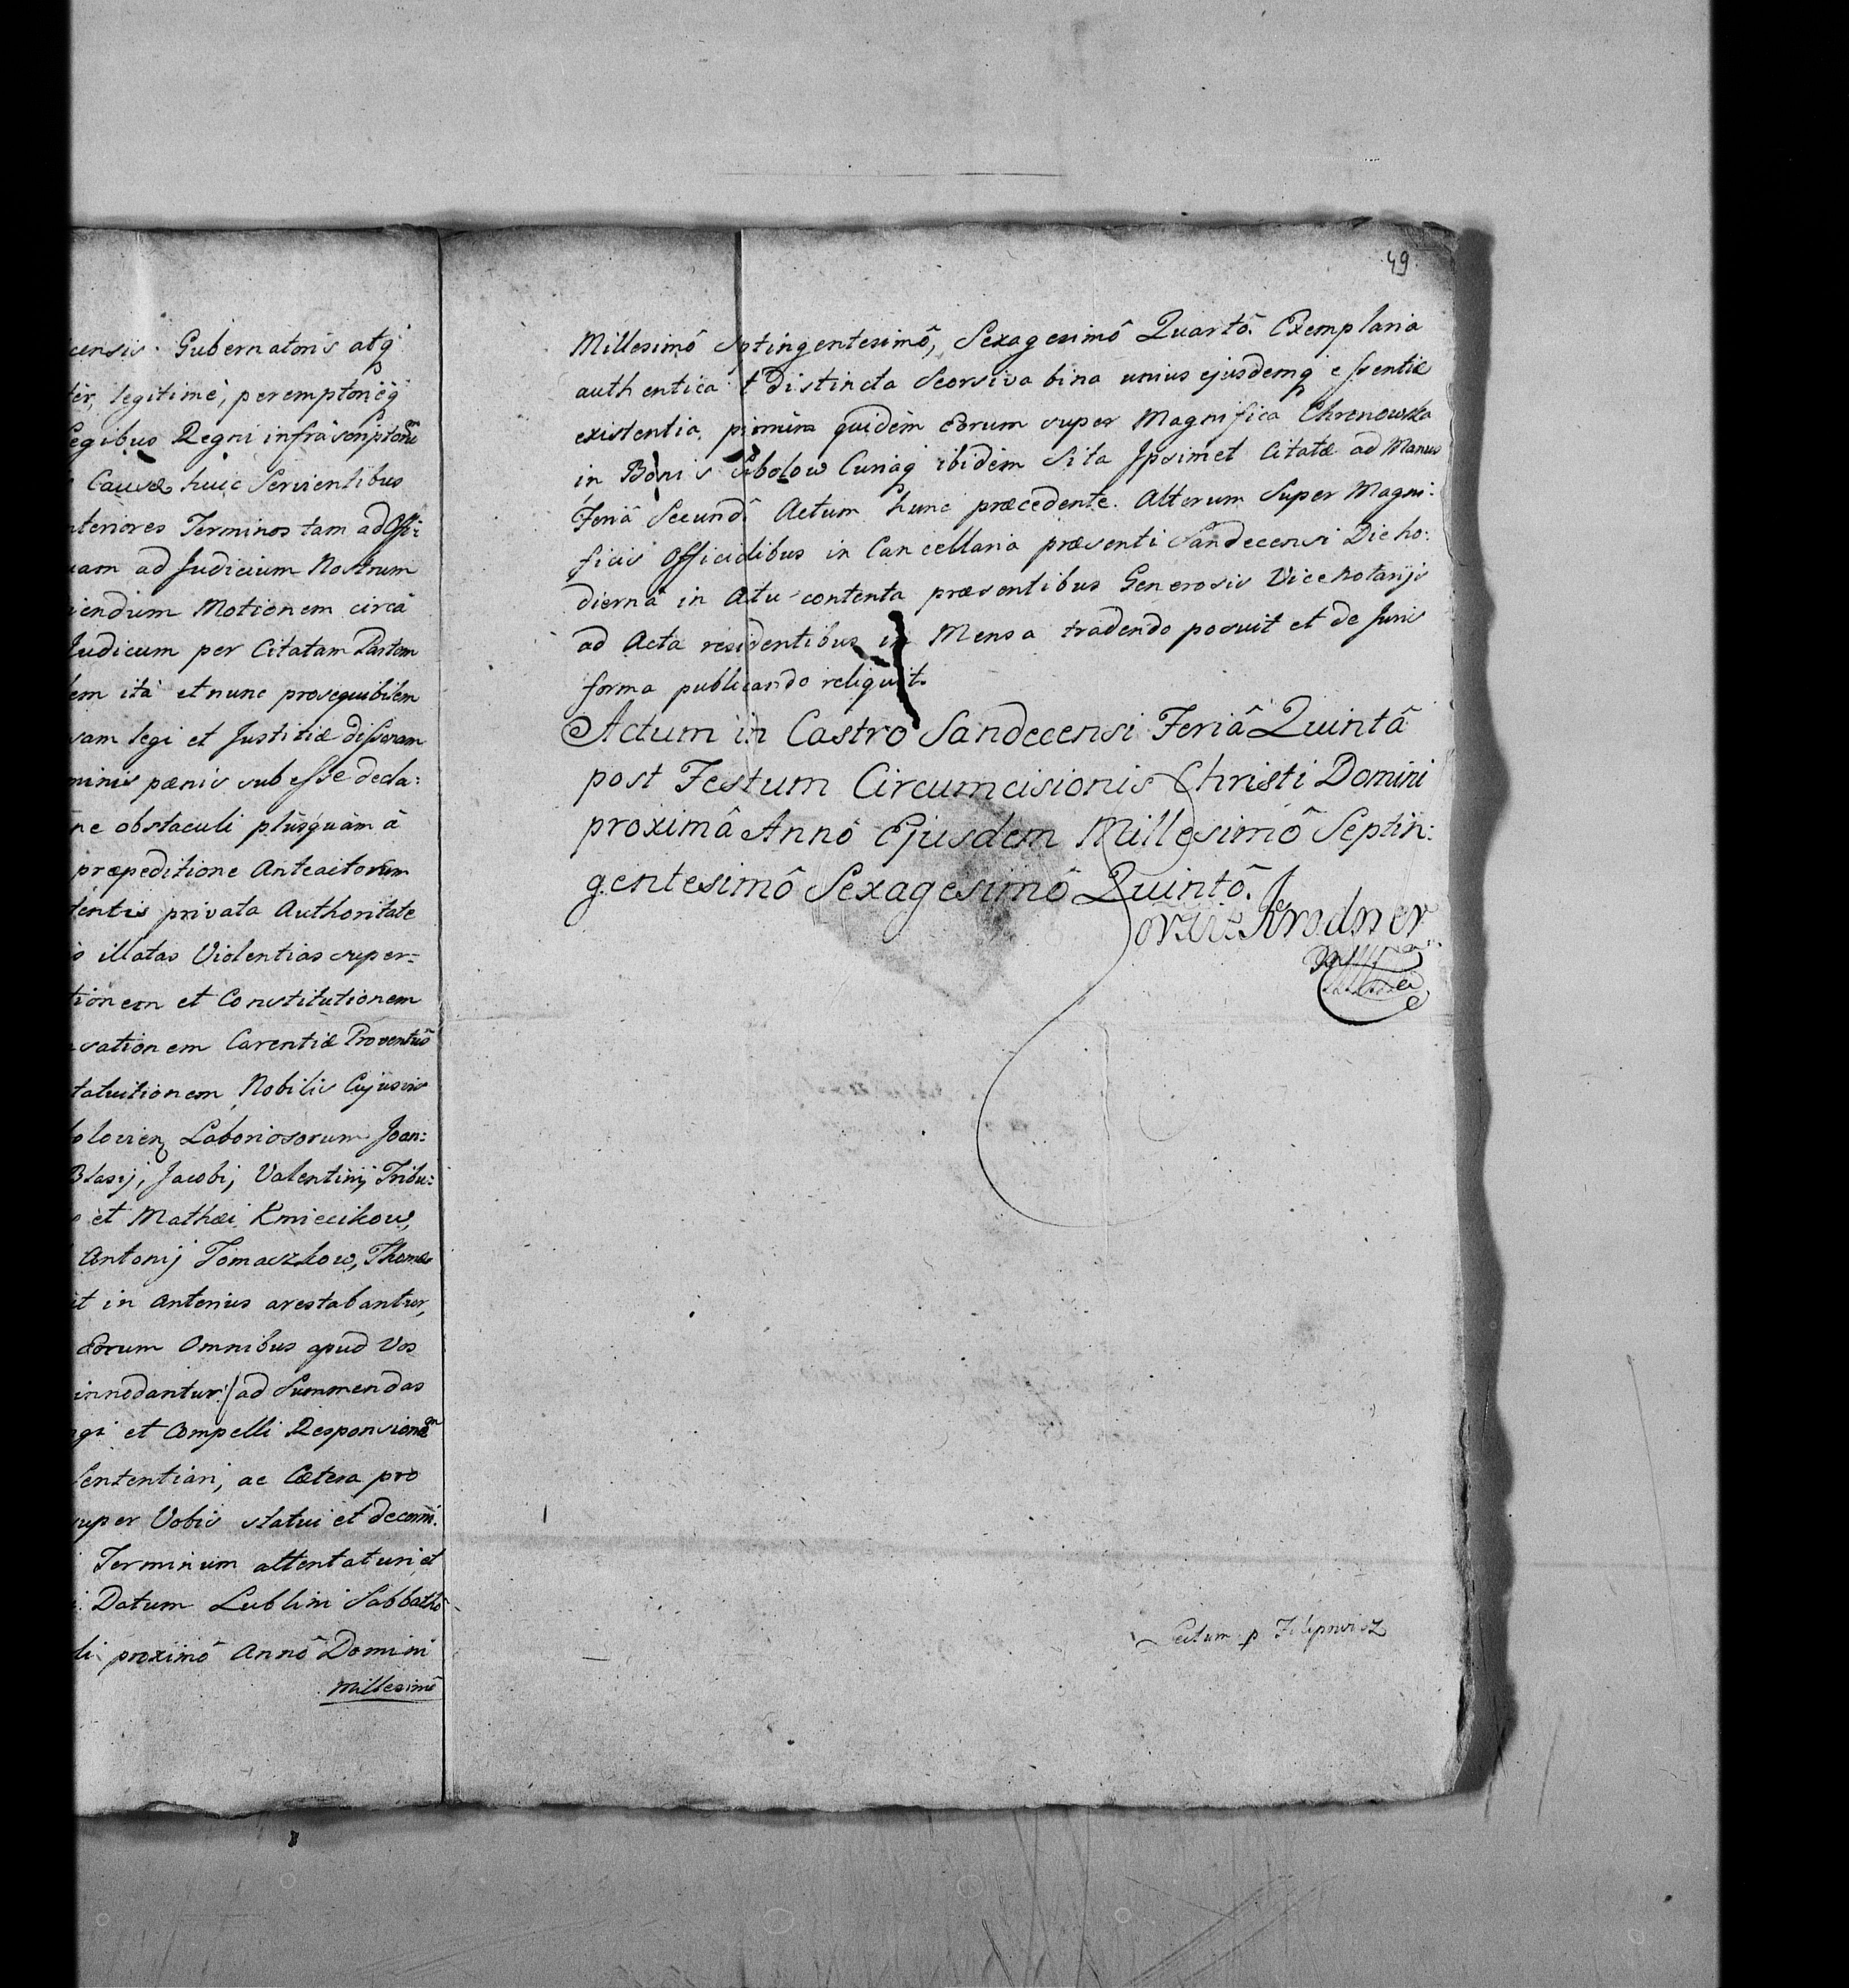 censis Gubernatoris atq
ter, legitimè, peremptorièq
Legibus Regni infrascriptam
Causæ huic Servientibus
nteriores Terminos tam ad Offi:
uam ad Judicium Nostrum
iendum Motionem circà
Judicum per Citatam Partem
lem ità et nunc prosequibilem
vam legi et Justitiæ dissonam
minis pænis subesse decla:
ne obstaculi plùsquàm à
præpeditione Anteactorum
dentis privata Authoritate
illatas Violentias super=
tionem et Constitutionem
sationem Carentiæ Proventus
tatuitionem Nobilis Cujusvis
bolovien Laboriosorum Joan:
Blasij, Jacobi, Valentinij Tribu:
et Mathæi Kmiecikow,
Antonij Tomaszkow, Thomæ
it in Anterius arestabantur,
Eorum Omnibus apud Vos
innodantur:/ ad Summendas
gi et Compelli Responsionem
Sententiari, ac Cætera pro
super Vobis statui et decerni.
Terminum attentaturi et
Datum Lublini Sabbathô
li proximô Annô Domini
Millesimô
49
Millesimô Septingentesimô, Sexagesimô Quartô. Exemplaria
authentica et distincta Seorsiva bina unius ejusdemq essentiæ
existentia, primùm quidèm eorum super Magnifica Chronowska
in Bonis Cibolow Curiaq ibidèm Sita Ipsimet Citatæ ad Manus
Feriâ Secundâ Actum hunc præcedente. Alterum Super Magni:
ficis Officialibus in Cancellaria præsenti Sandecensi Die ho:
diernâ in Actu contenta præsentibus Generosis Vice Notarijs
ad Acta residentibus in Mensa tradendo posuit et de Juris
forma publicando reliquit.
Actum in Castro Sandecensi Feriâ Quintâ
post Festum Circumcisionis Christi Domini
proximâ Annô Ejusdem Millesimô Septin:
gentesimô Sexagesimô Quintô.
Lectum p Filipowicz